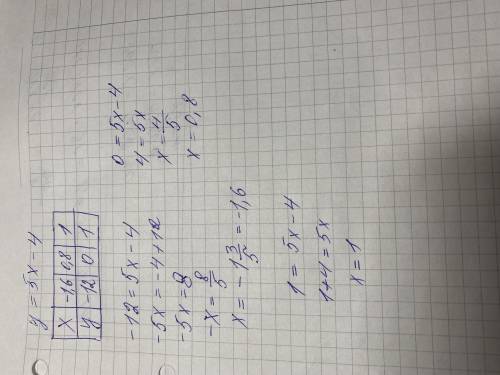 y = 5x - 4
x -1,6 0,8 1
y -12 0 1
-12 = 5x - 4
-5x = -4 + 12
-5x = 8
-x = 8/5
x = -1 3/5 = -1,6
0 = 5x - 4
4 = 5x
x = 4/5
x = 0,8
1 = 5x - 4
1 + 4 = 5x
x = 1